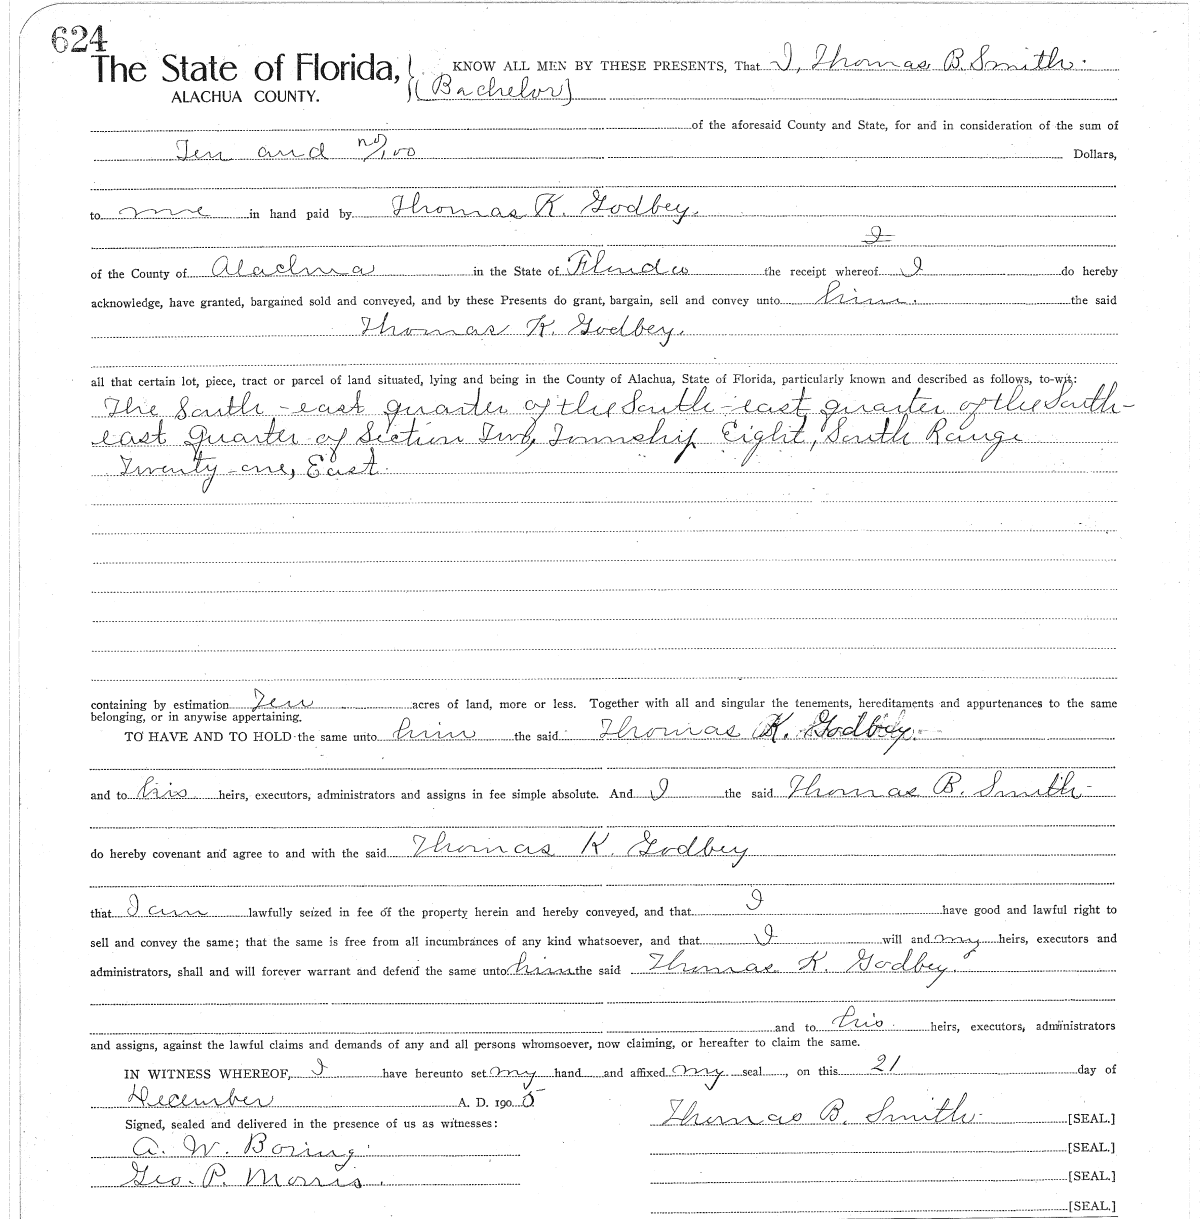 624
The State of Florida, KNOW ALL MEN BY THESE PRESENTS, That I, Thomas B. Smith.
ALACHUA COUNTY. (Bachelor)
of the aforesaid County and State, for and in consideration of the sum of
Ten and no/100 Dollars,
to me in hand paid by Thomas K. Godbey.
I
of the County of Alachua in the State of Florida the receipt whereof I do hereby
acknowledge, have granted, bargained sold and conveyed, and by these Presents do grant, bargain, sell and convey unto him. the said
Thomas K. Godbey.
all that certain lot, piece, tract or parcel of land situated, lying and being in the County of Alachua, State of Florida, particularly known and described as follows, to-wit:
The South-east quarter of the South-east quarter of the South-
east Quarter of Section Two, Township Eight, South Range
Twenty-one, East.
containing by estimation Ten acres of land, more or less. Together with all and singular the tenements, hereditaments and appurtenances to the same
belonging, or in anywise appertaining.
TO HAVE AND TO HOLD the same unto him the said Thomas K. Godbey.
and to his heirs, executors, administrators and assigns in fee simple absolute. And I the said Thomas B. Smith
do hereby covenant and agree to and with the said Thomas K. Godbey
that I am lawfully seized in fee of the property herein and hereby conveyed, and that I have good and lawful right to
sell and convey the same; that the same is free from all incumbrances of any kind whatsoever, and that I will and my heirs, executors and
administrators, shall and will forever warrant and defend the same unto him the said Thomas K. Godbey
and to his heirs, executors, administrators
and assigns, against the lawful claims and demands of any and all persons whomsoever, now claiming, or hereafter to claim the same.
IN WITNESS WHEREOF, I have hereunto set my hand and affixed my seal, on this 21 day of
December A. D. 1905
Thomas B. Smith [SEAL.]
Signed, sealed and delivered in the presence of us as witnesses:
A. W. Boring [SEAL.]
Geo. P. Morris. [SEAL.]
[SEAL.]